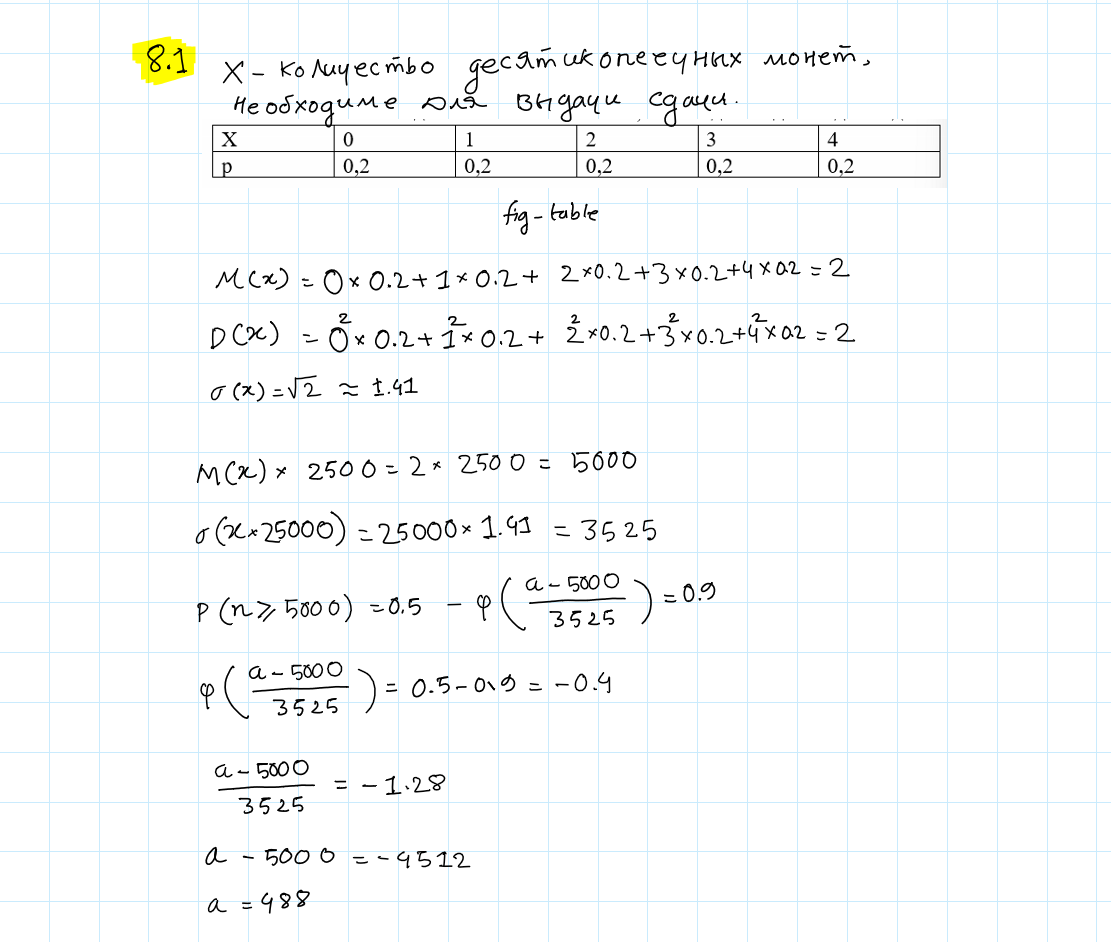 8.1
X - количество десятикопеечных монет,
необходиме для выдачи сдачи.
X 0 1 2 3 4
p 0,2 0,2 0,2 0,2 0,2
fig-table
M(x) = 0 × 0.2 + 1 × 0.2 + 2 × 0.2 + 3 × 0.2 + 4 × 0.2 = 2
D(x) = 0² × 0.2 + 1² × 0.2 + 2² × 0.2 + 3² × 0.2 + 4² × 0.2 = 2
σ(x) = √2 ≈ 1.41
M(x) × 2500 = 2 × 2500 = 5000
σ(x × 25000) = 25000 × 1.41 = 3525
P(n ⩾ 5000) = 0.5 - φ((a - 5000)/3525) = 0.9
φ((a - 5000)/3525) = 0.5 - 0.9 = -0.4
(a - 5000)/3525 = -1.28
a - 5000 = -4512
a = 488